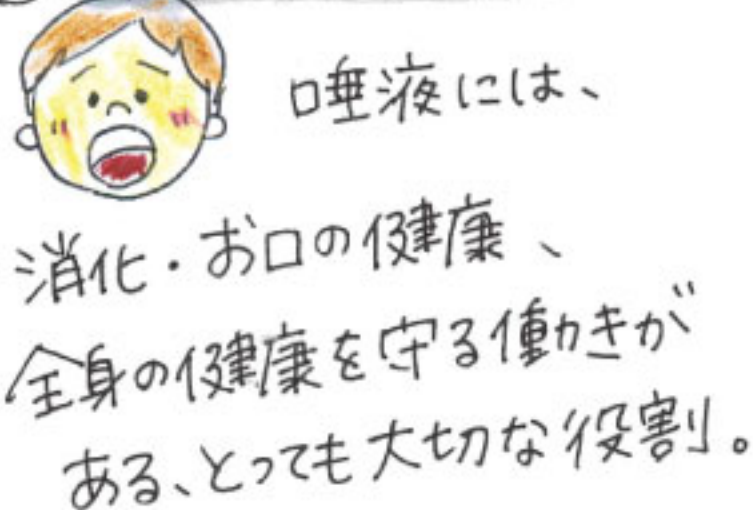 唾液には、
消化・お口の健康、
全身の健康を守る働きが
ある、とっても大切な役割。